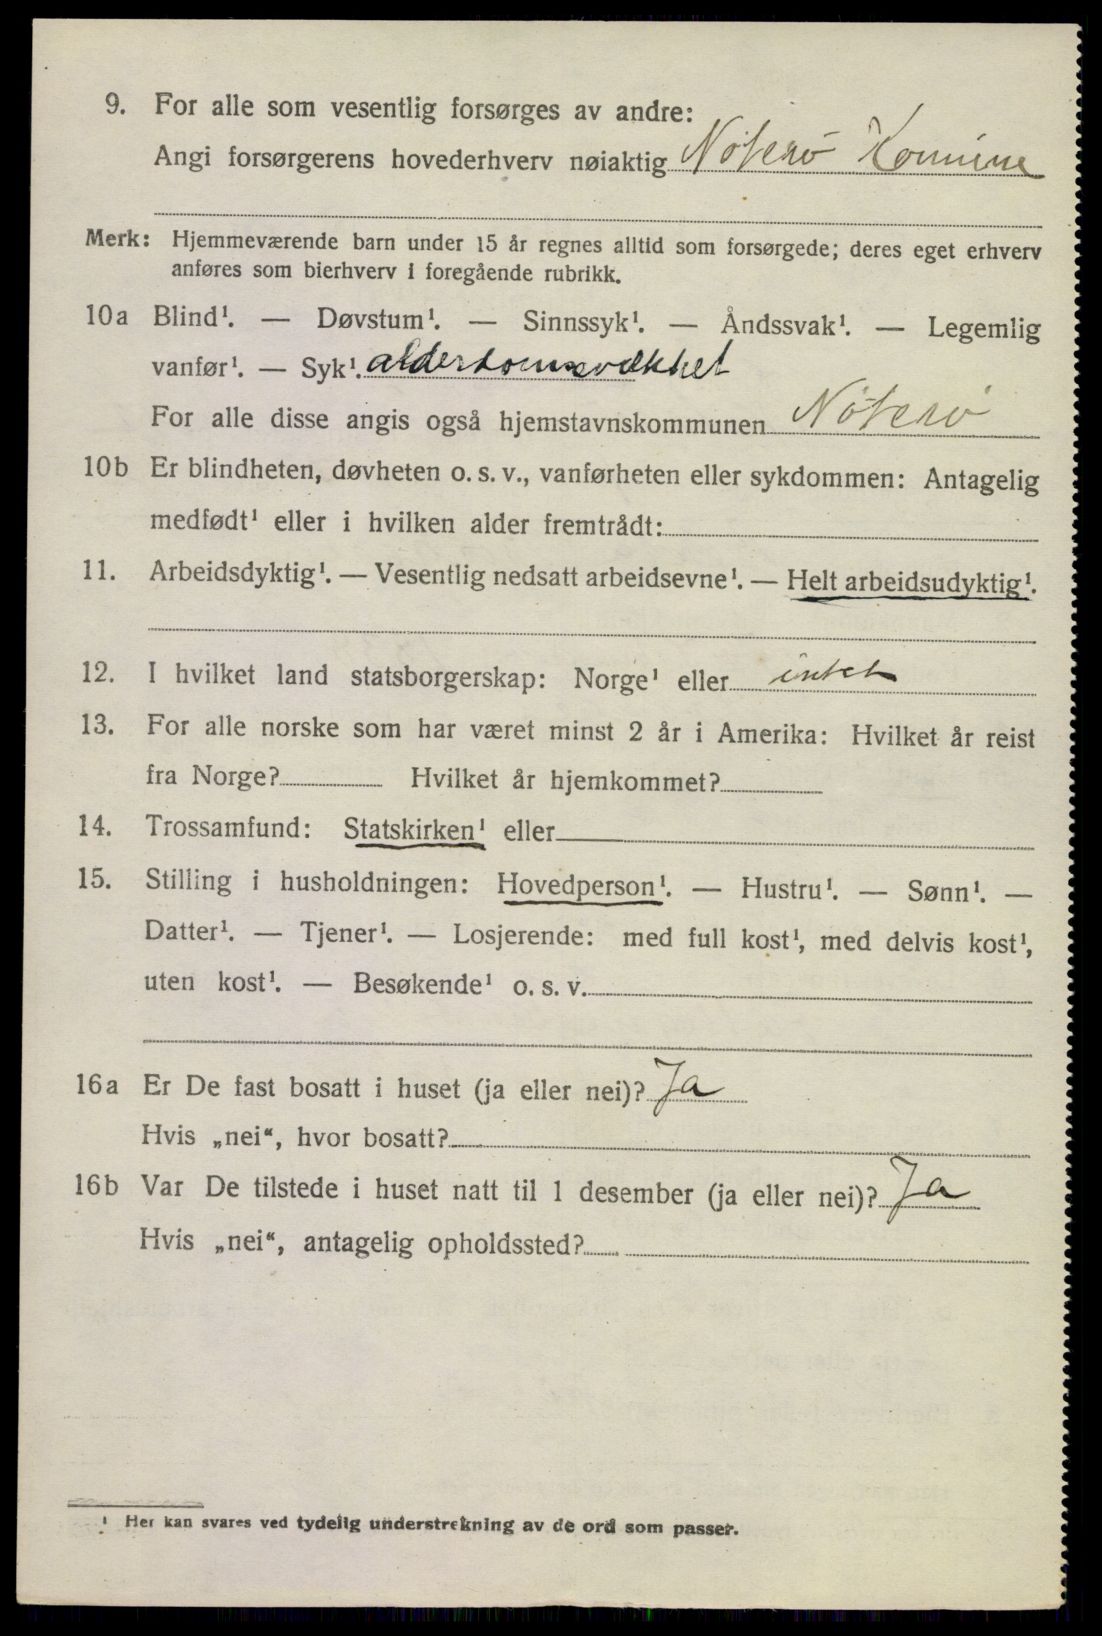 9. For alle som vesentlig forsørges av andre:
Angi forsørgerens hovederhverv nøiaktig Nøterø Komune
Merk: Hjemmeværende barn under 15 år regnes alltid som forsørgede; deres eget erhverv
anføres som bierhverv i foregående rubrikk.
10a Blind¹. — Døvstum¹. — Sinnssyk¹. — Åndssvak¹. — Legemlig
vanfør¹. — Syk¹. alderdomsvækket
For alle disse angis også hjemstavnskommunen Nøterø
10b Er blindheten, døvheten o. s. v., vanførheten eller sykdommen: Antagelig
medfødt¹ eller i hvilken alder fremtrådt:
11. Arbeidsdyktig¹. — Vesentlig nedsatt arbeidsevne¹. — Helt arbeidsudyktig¹.
12. I hvilket land statsborgerskap: Norge¹ eller intet
13. For alle norske som har været minst 2 år i Amerika: Hvilket år reist
fra Norge? Hvilket år hjemkommet?
14. Trossamfund: Statskirken¹ eller
15. Stilling i husholdningen: Hovedperson¹. — Hustru¹. — Sønn¹. —
Datter¹. — Tjener¹. — Losjerende: med full kost¹, med delvis kost¹,
uten kost¹. — Besøkende¹ o. s. v.
16a Er De fast bosatt i huset (ja eller nei)? Ja
Hvis „nei“, hvor bosatt?
16b Var De tilstede i huset natt til 1 desember (ja eller nei)? Ja
Hvis „nei“, antagelig opholdssted?
¹ Her kan svares ved tydelig understrekning av de ord som passer.